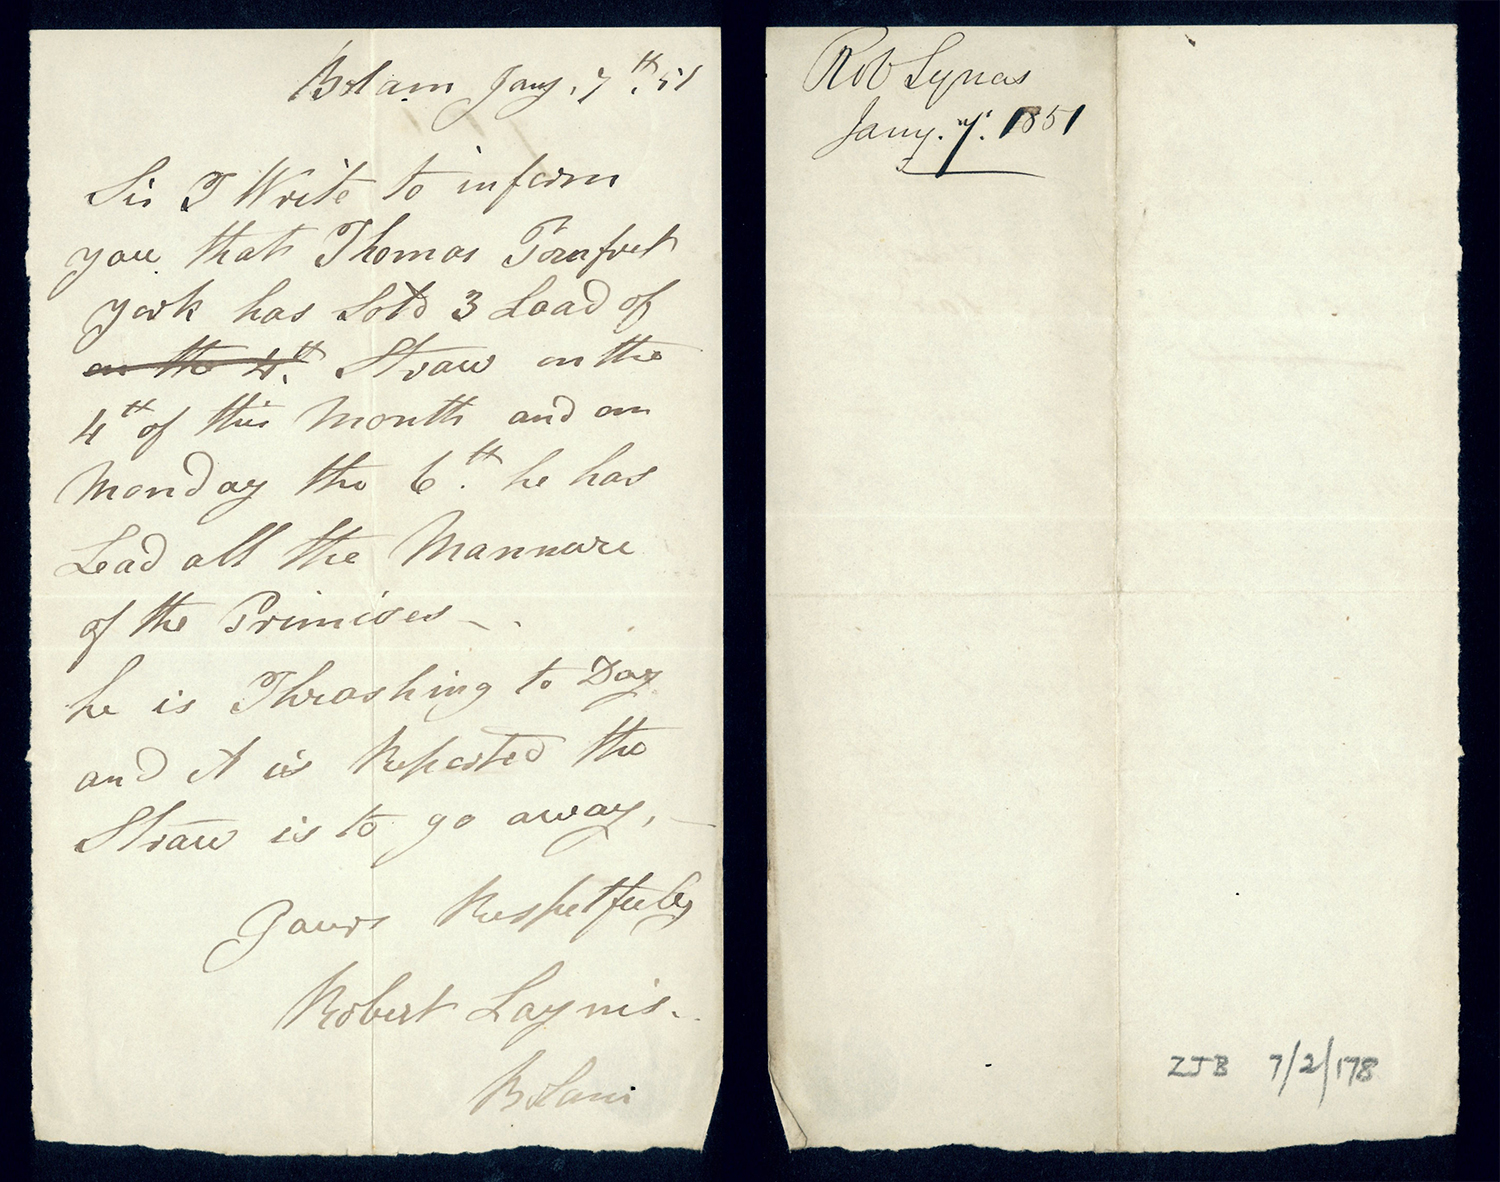 Bolam Jany. 7th. 51
Sir I Write to inform
you that Thomas Pomfret
york has Sold 3 Load of
on the 4th. Straw on the
4th of this Month and on
Monday the 6th. he has
Lead all the Mannure
of the Primises -
he is Thrashing to Day
and it is Reported the
Straw is to go away, -
Yours Respetfuly
Robert Laynis.
Bolam
Rob Lynas
Jany. 7. 1851
ZJB 7/2/178